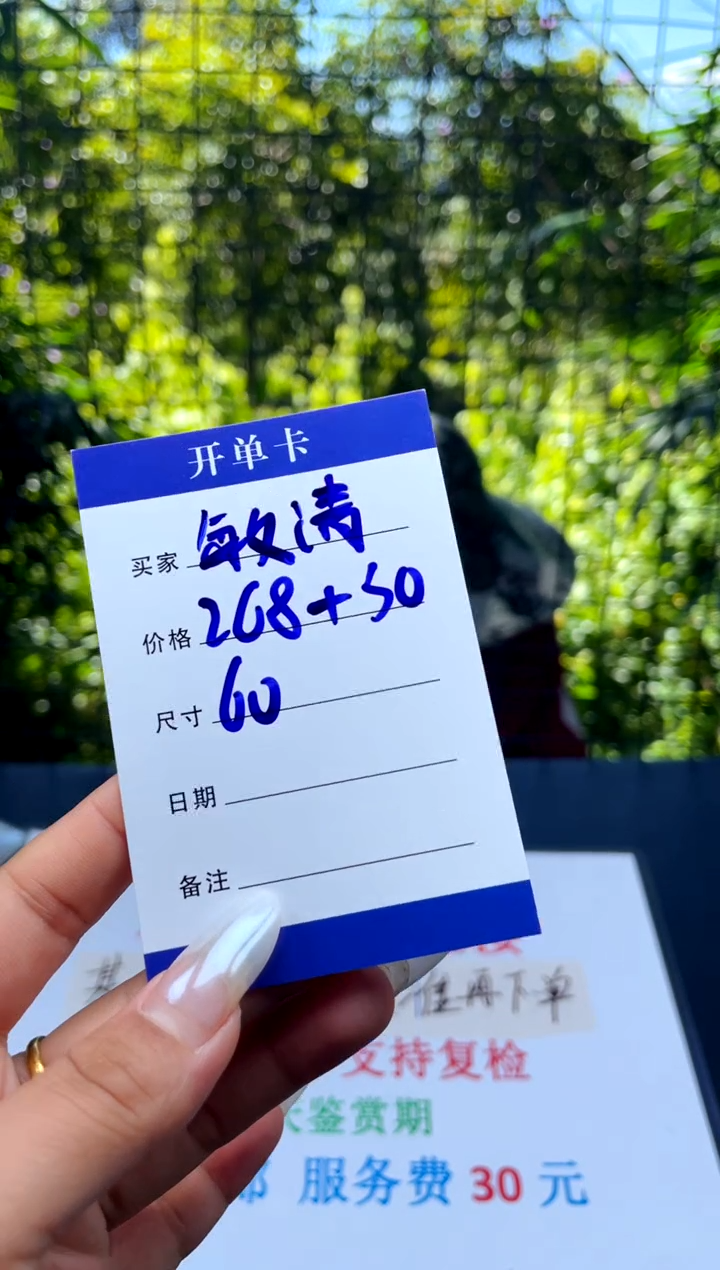 开单卡
买家 敏涛
价格 268+50
尺寸 60
日期
备注
准再下单
支持复检
鉴赏期
服务费 30 元